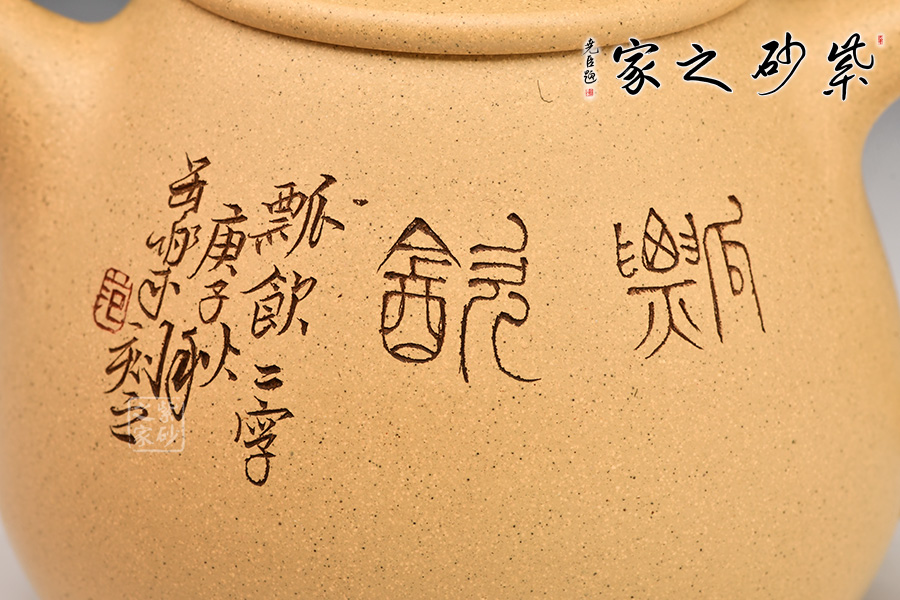 紫砂之家
尧臣题
瓢飲
瓢飲二字
庚子秋月
刻之
紫砂之家